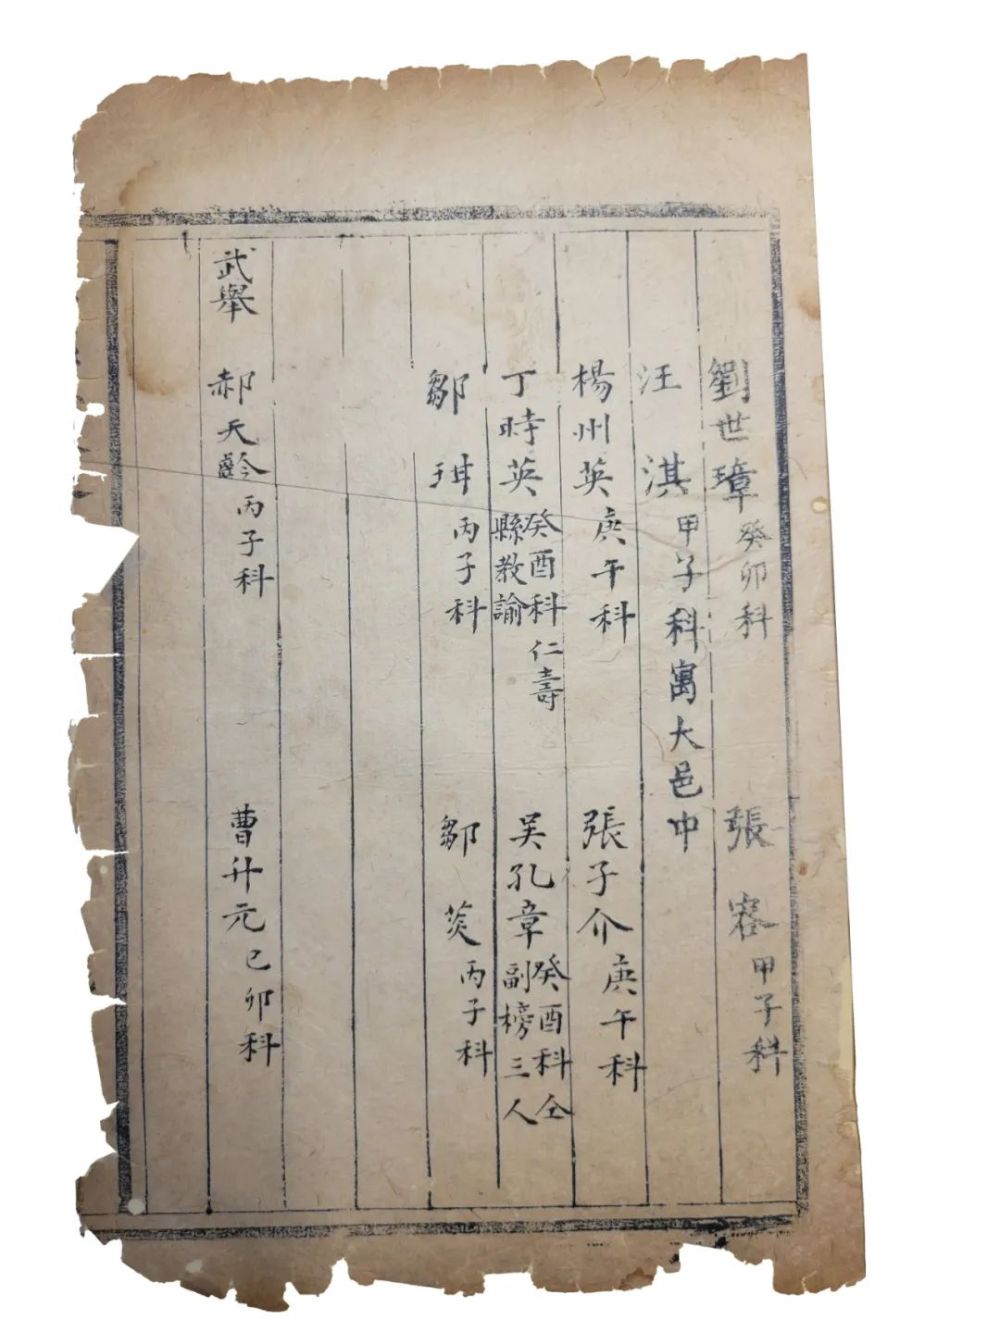 劉世璋癸卯科 張㝓甲子科
汪淇甲子科寓大邑中
楊州英庚午科 張子介庚午科
丁時英癸酉科仁壽縣教諭 吴孔章癸酉科仝副榜三人
鄒玵丙子科 鄒茭丙子科
武舉 郝天齡丙子科 曹升元己卯科